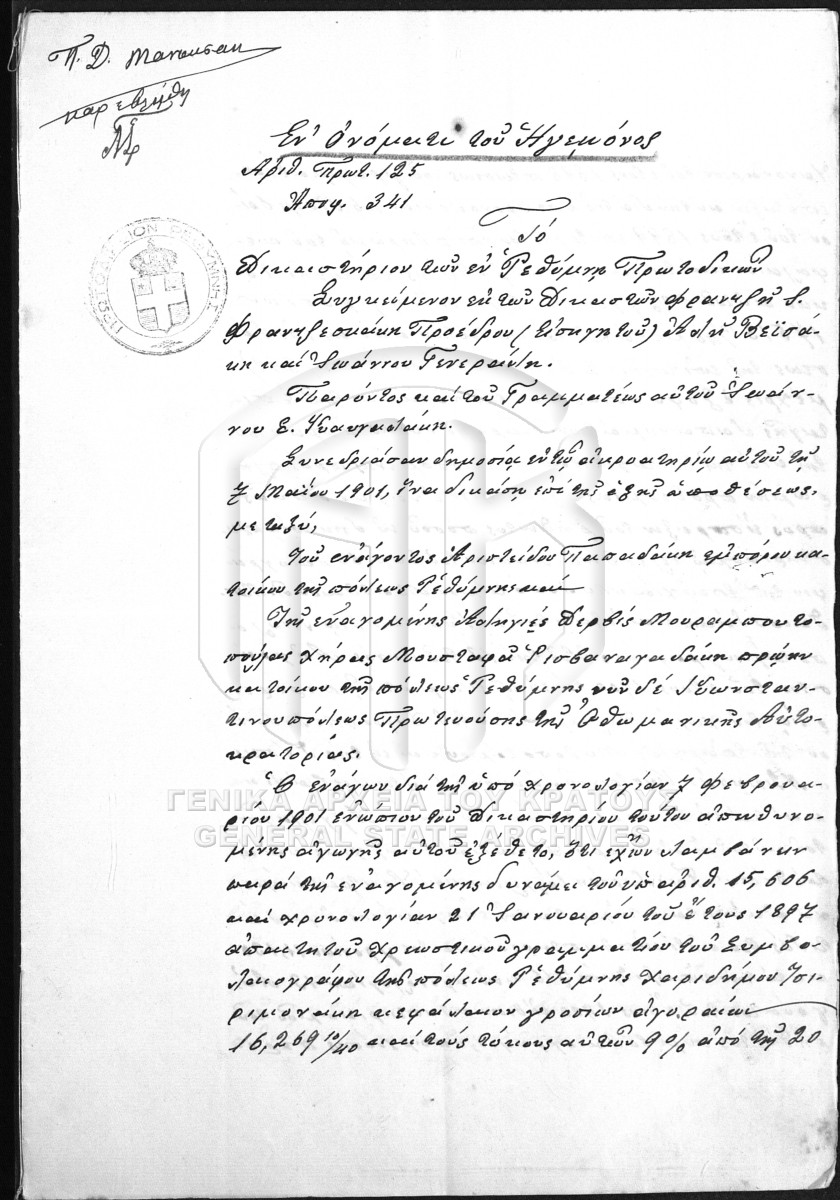 Π. Δ. Μανουσακ
παρεβλήθη
Ἐν Ὀνόματι τοῦ Ἡγεμόνος
Ἀριθ. Πρωτ. 125
Ἀποφ. 341
Τό
Δικαστήριον τῶν ἐν Ρεθύμνῃ Πρωτοδικῶν
Συγκείμενον ἐκ τῶν Δικαστῶν Φραντζῆ Ι.
Φραντζεσκάκη Προέδρου (εἰσηγητοῦ) Ἀλῆ Βεϊσά-
κη καί Ἰωάννου Γενεράλη.
Παρόντος καί τοῦ Γραμματέως αὐτοῦ Ἰωάν-
νου Ε.
Συνεδριάσαν δημοσίᾳ ἐν τῷ ἀκροατηρίῳ αὐτοῦ τῇ
7 Μαΐου 1901, ἵνα δικάσῃ ἐπί τῆς ἑξῆς ὑποθέσεως,
μεταξύ,
Τοῦ ἐνάγοντος Ἀριστείδου Παπαδάκη ἐμπόρου κα-
τοίκου τῆς πόλεως Ρεθύμνης καί
Τῆς ἐναγομένης Δερβίς Μουραμπουτο-
πούλας χήρας Μουσταφᾶ Ρισβαναγαδάκη πρῴην
κατοίκου τῆς πόλεως Ρεθύμνης νῦν δέ Κωνσταν-
τινουπόλεως Πρωτευούσης τῆς Ὀθωμανικῆς Αὐτο-
κρατορίας.
Ὁ ἐνάγων διά τῆς ὑπό χρονολογίαν 7 Φεβρουα-
ρίου 1901 ἐνώπιον τοῦ Δικαστηρίου τούτου ἀπευθυνο-
μένης ἀγωγῆς αὐτοῦ ἐξέθετο, ὅτι ἔχων λαμβάνειν
παρά τῆς ἐναγομένης δυνάμει τοῦ ὑπ' ἀριθ. 15,606
καί χρονολογίαν 21 Ἰανουαρίου τοῦ ἔτους 1897
ἀπαιτητοῦ χρεωστικοῦ γραμματίου τοῦ Συμβο-
λαιογράφου τῆς πόλεως Ρεθύμνης Χαριδήμου Τσι-
ριμονάκη κεφάλαιον γροσίων ἀγοραίων
16,269 10/40 καί τούς τόκους αὐτῶν 9% ἀπό τῆς 20
ΓΕΝΙΚΑ ΑΡΧΕΙΑ ΤΟΥ ΚΡΑΤΟΥΣ
GENERAL STATE ARCHIVES